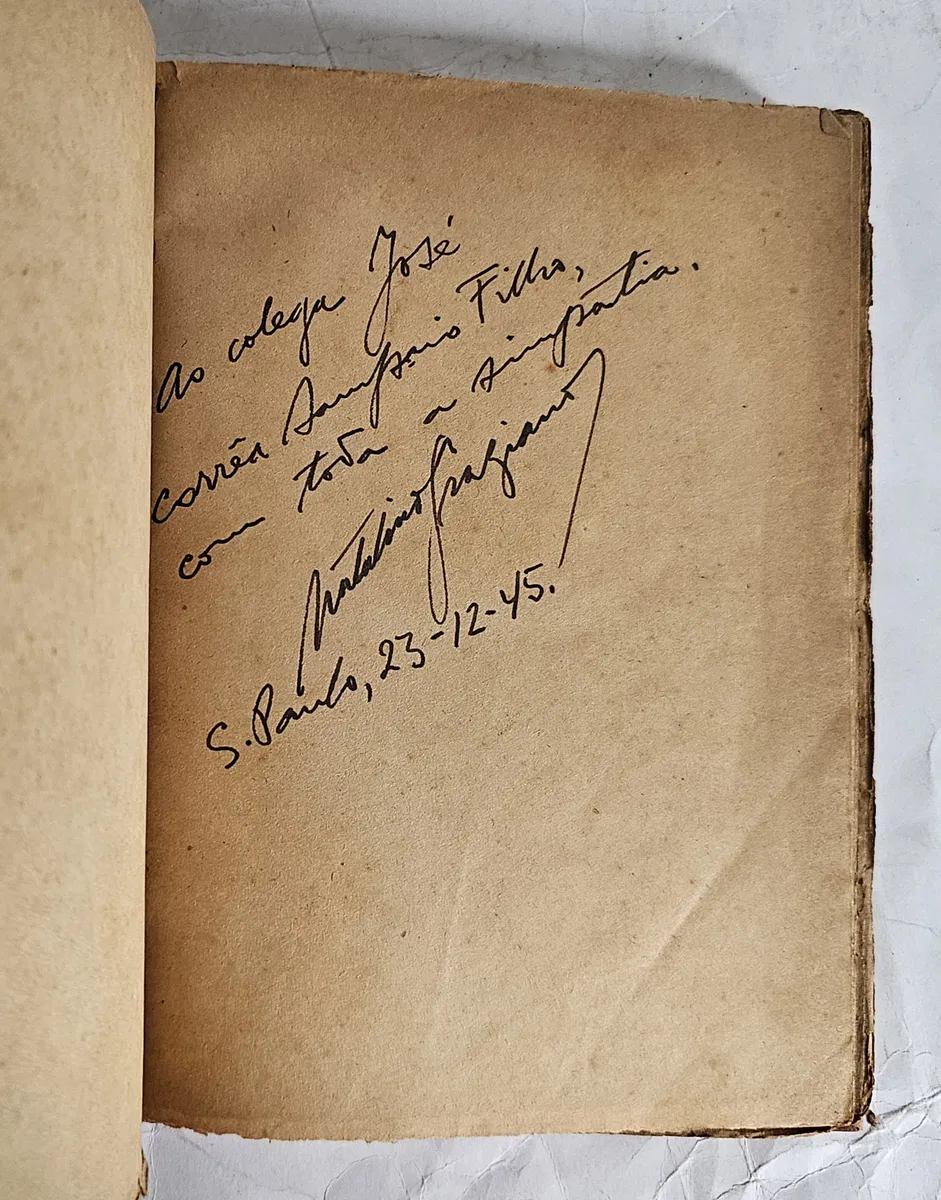 Ao colega José
Corrêa Sampaio Filho,
com toda a simpatia.
Natalino Graziano
S. Paulo, 23-12-45.